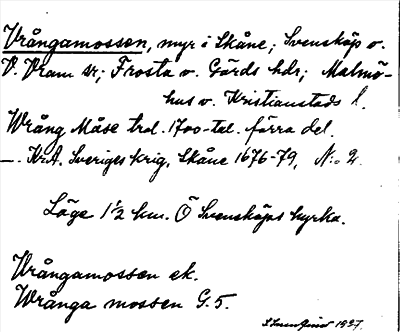 Vrångamossen, myr i Skåne; Svensköp o.
V. Vram sr; Frosta o. Gärds hdr; Malmö-
hus o. Kristianstads l.
Wrång Måse trol. 1700-tal. förra del.
—. KrA. Sveriges krig, Skåne 1676-79, N:o 2.
Läge 1½ km. Ö Svensköps kyrka.
Vrångamossen ek.
Wrånga mossen G. 5.
1927.